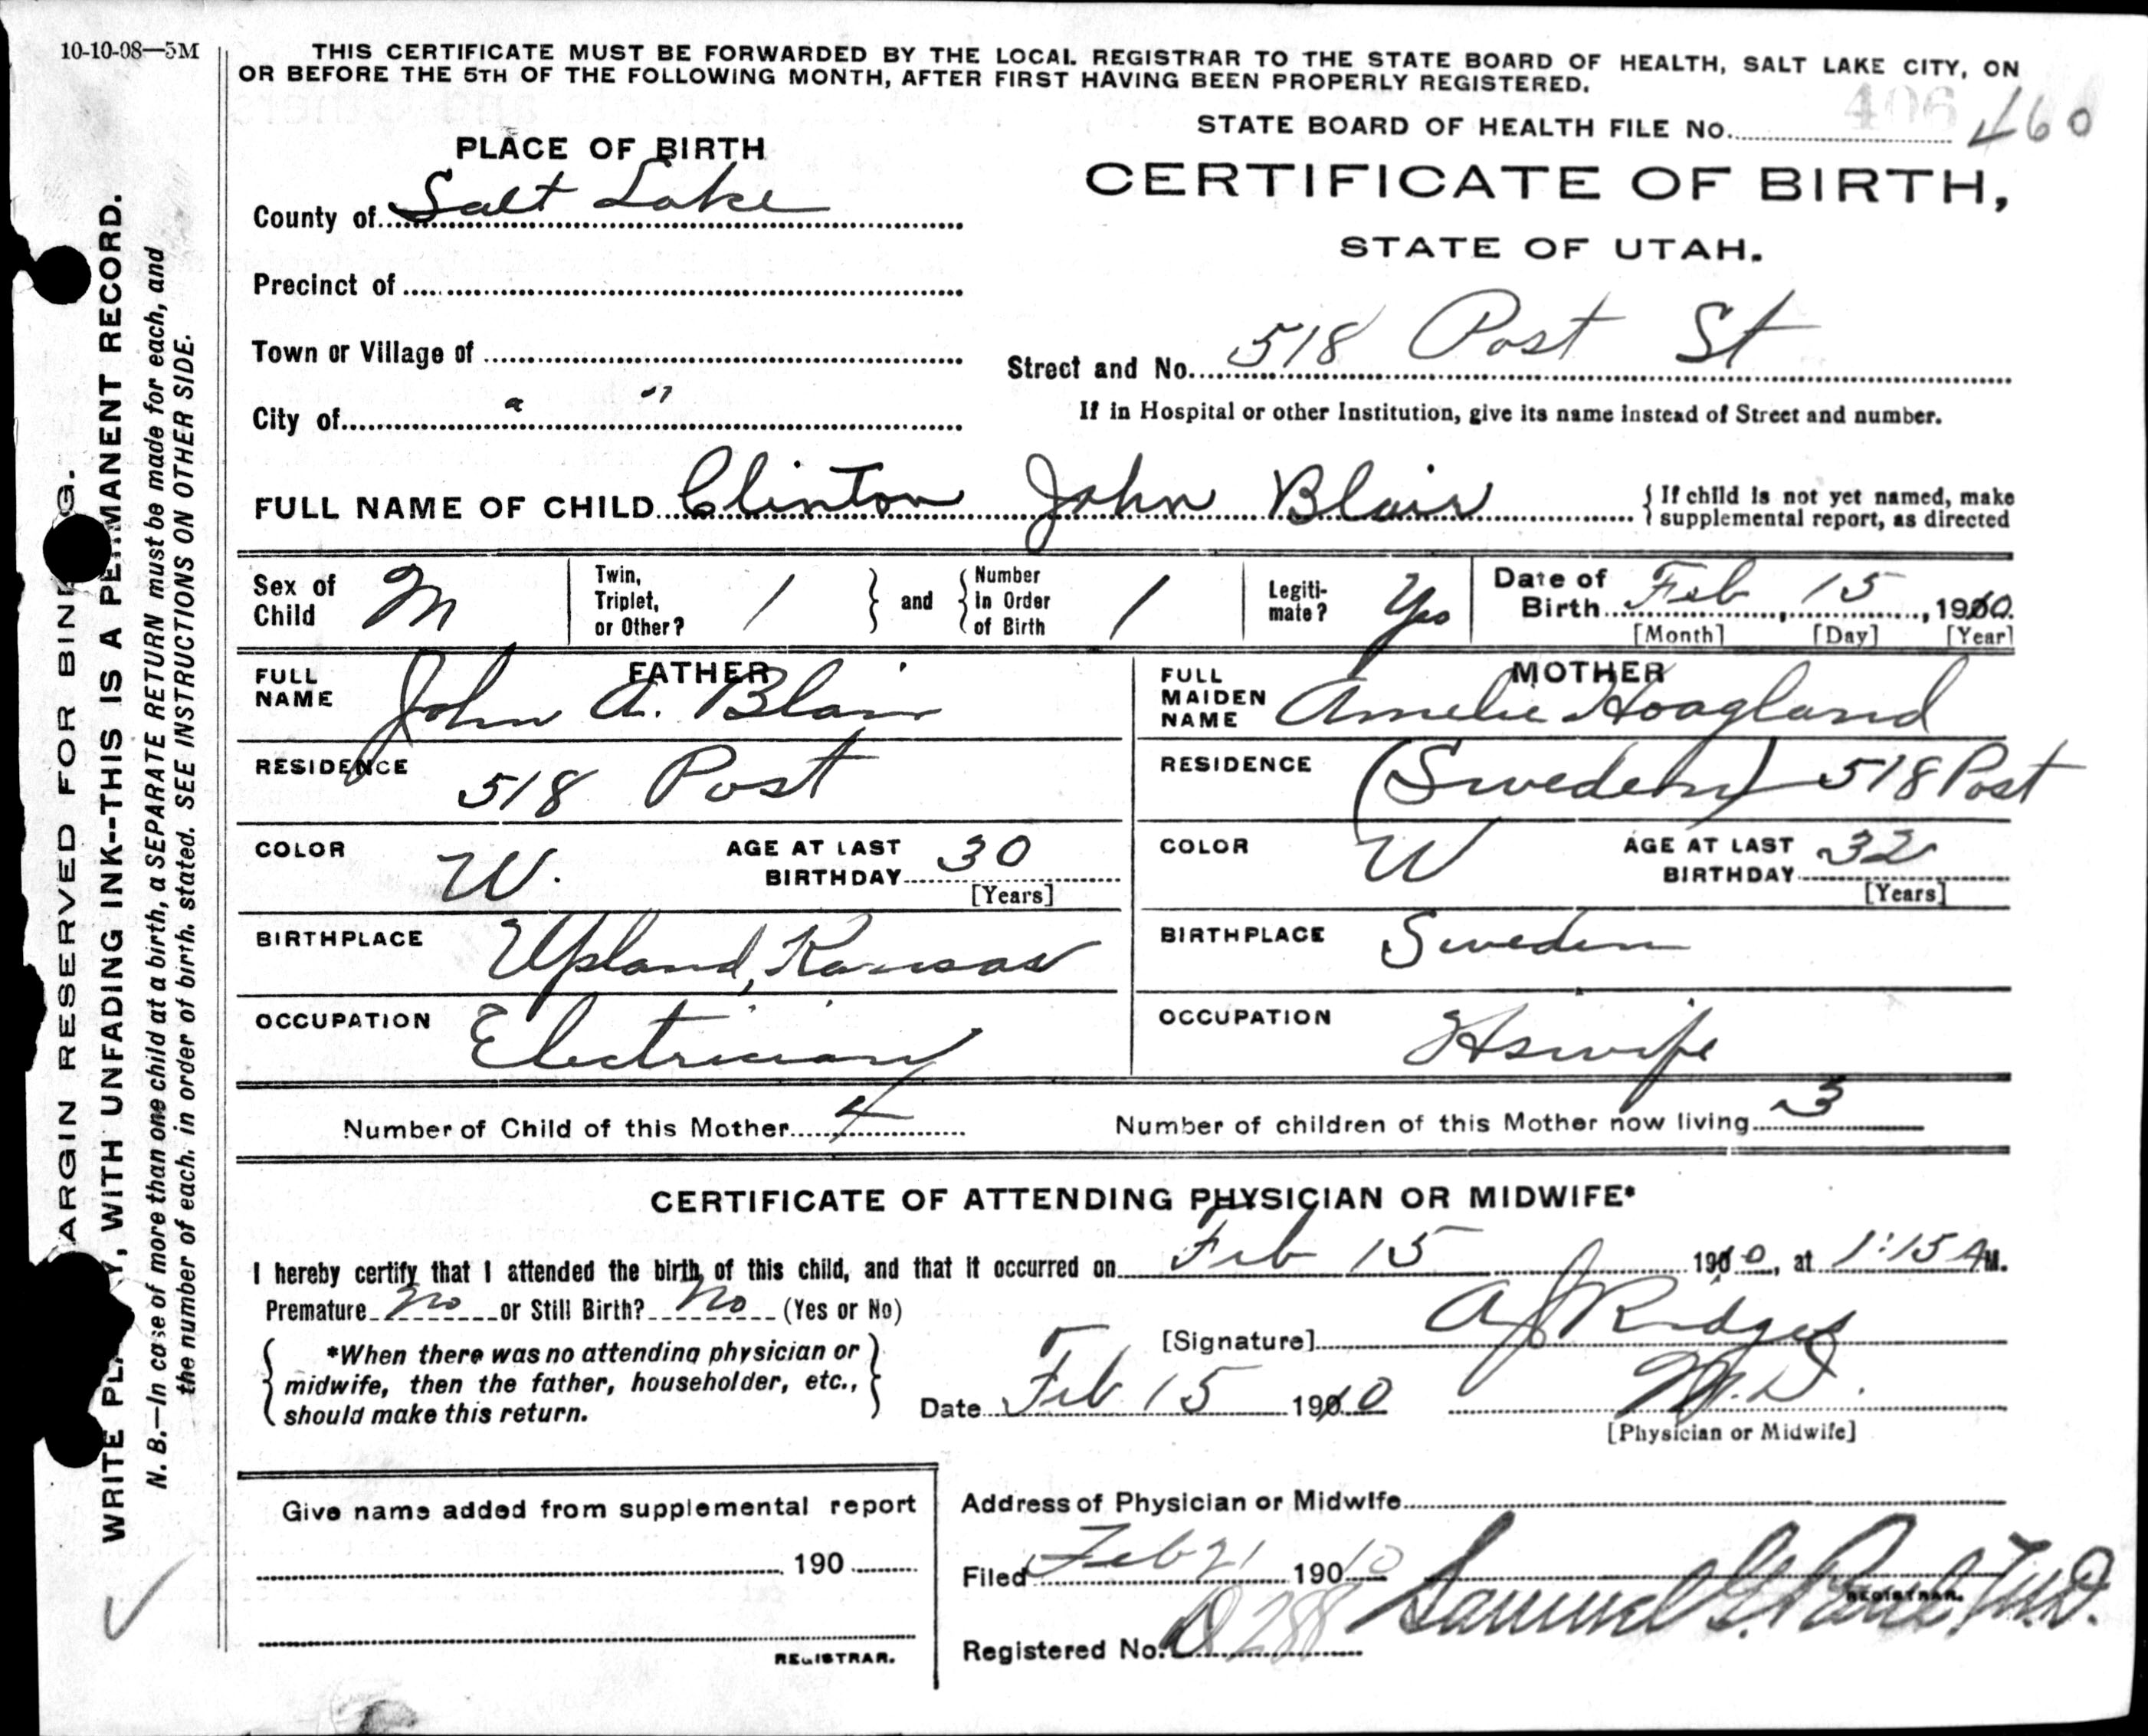 10-10-08—5M
THIS CERTIFICATE MUST BE FORWARDED BY THE LOCAL REGISTRAR TO THE STATE BOARD OF HEALTH, SALT LAKE CITY, ON
OR BEFORE THE 5TH OF THE FOLLOWING MONTH, AFTER FIRST HAVING BEEN PROPERLY REGISTERED.
406
STATE BOARD OF HEALTH FILE No. 460
PLACE OF BIRTH
CERTIFICATE OF BIRTH,
STATE OF UTAH.
County of Salt Lake
Precinct of
Town or Village of
Street and No. 518 Post St
City of " "
If in Hospital or other Institution, give its name instead of Street and number.
FULL NAME OF CHILD Clinton John Blair
{ If child is not yet named, make
supplemental report, as directed
Sex of Child M
Twin, Triplet, or Other? 1 } and { Number In Order of Birth 1
Legiti-mate? Yes
Date of Birth Feb 15, 1910.
[Month] [Day] [Year]
FATHER
FULL NAME John A. Blair
RESIDENCE 518 Post
COLOR W. AGE AT LAST BIRTHDAY 30 [Years]
BIRTHPLACE Upland, Kansas
OCCUPATION Electrician
MOTHER
FULL MAIDEN NAME Amelie Hoagland
RESIDENCE (Sweden) 518 Post
COLOR W AGE AT LAST BIRTHDAY 32 [Years]
BIRTHPLACE Sweden
OCCUPATION Hswife
Number of Child of this Mother 4 Number of children of this Mother now living 3
CERTIFICATE OF ATTENDING PHYSICIAN OR MIDWIFE*
I hereby certify that I attended the birth of this child, and that it occurred on Feb 15 1910, at 1:15 AM.
Premature no or Still Birth? no (Yes or No)
{ *When there was no attending physician or
midwife, then the father, householder, etc.,
should make this return. }
[Signature] A J Ridges
Date Feb 15 1910 M.D.
[Physician or Midwife]
Give name added from supplemental report
190
REGISTRAR.
Address of Physician or Midwife
Filed Feb 21 1910 Samuel G. Paul, M.D.
REGISTRAR.
Registered No. 288
ARGIN RESERVED FOR BIN G.
WRITE PLA Y, WITH UNFADING INK--THIS IS A PERMANENT RECORD.
N. B.—In case of more than one child at a birth, a SEPARATE RETURN must be made for each, and
the number of each, in order of birth, stated. SEE INSTRUCTIONS ON OTHER SIDE.